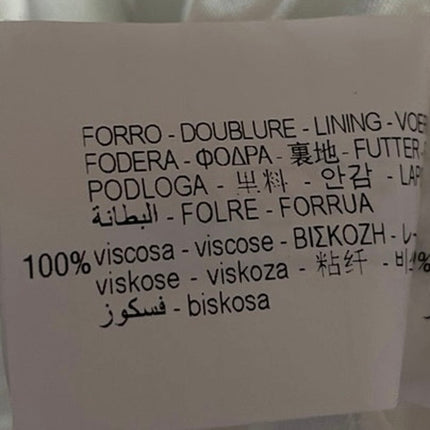 FORRO - DOUBLURE - LINING - VOE
FODERA - ΦΟΔΡΑ - 裏地 - FUTTER
PODLOGA - 里料 - 안감 - LAP
البطانة - FOLRE - FORRUA
100% viscosa - viscose - ΒΙΣΚΟΖΗ - レ
viskose - viskoza - 粘纤 - 비
فسكوز - biskosa